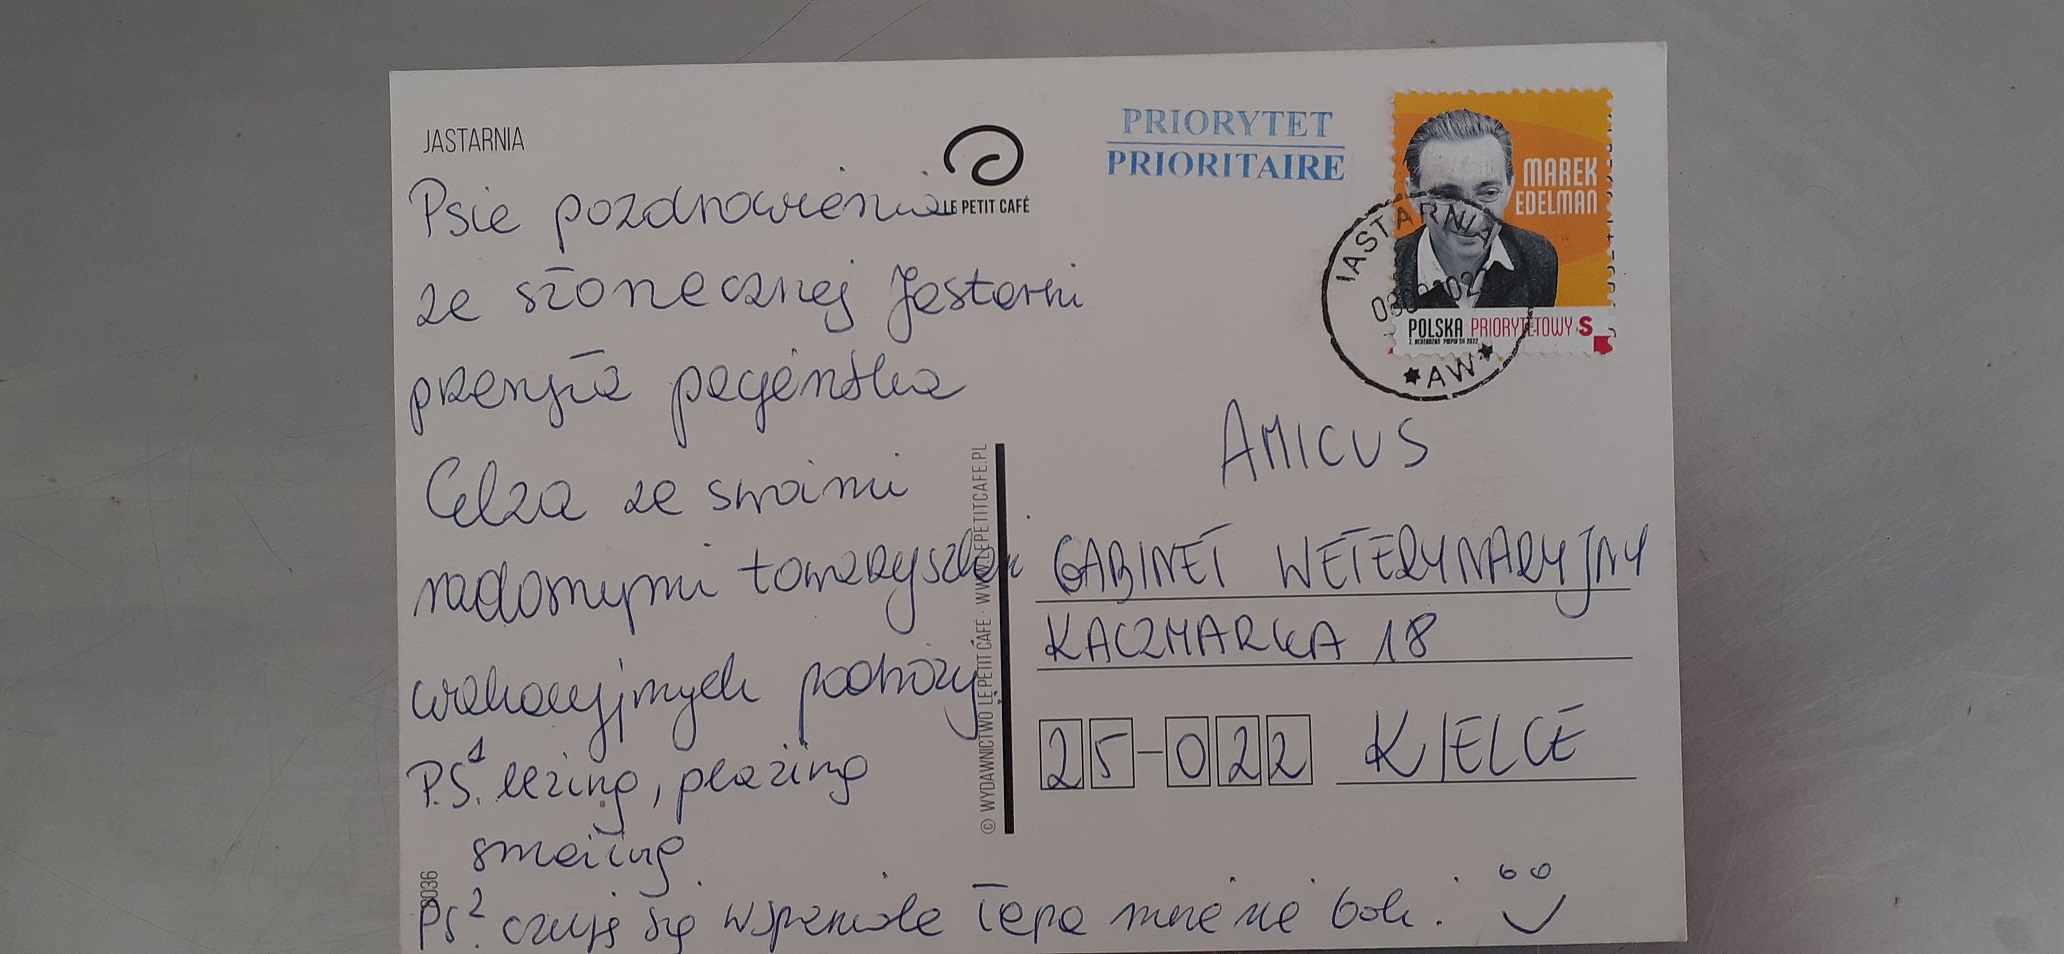 JASTARNIA
LE PETIT CAFÉ
PRIORYTET
PRIORITAIRE
MAREK
EDELMAN
POLSKA PRIORYTETOWY S
JASTARNIA
AW
Psie pozdrowienia
ze słonecznej Jastarni
przesyła pacjentka
Celza ze swoimi
radosnymi towarzyszkami
wakacyjnych podróży
P.S.1 leżing, plażing
smażing
PS.2 czuję się wspaniale łapa mnie nie boli!
© WYDAWNICTWO LE PETIT CAFÉ · WWW.LEPETITCAFE.PL
AMICUS
GABINET WETERYNARYJNY
KACZMARKA 18
25-022 KIELCE